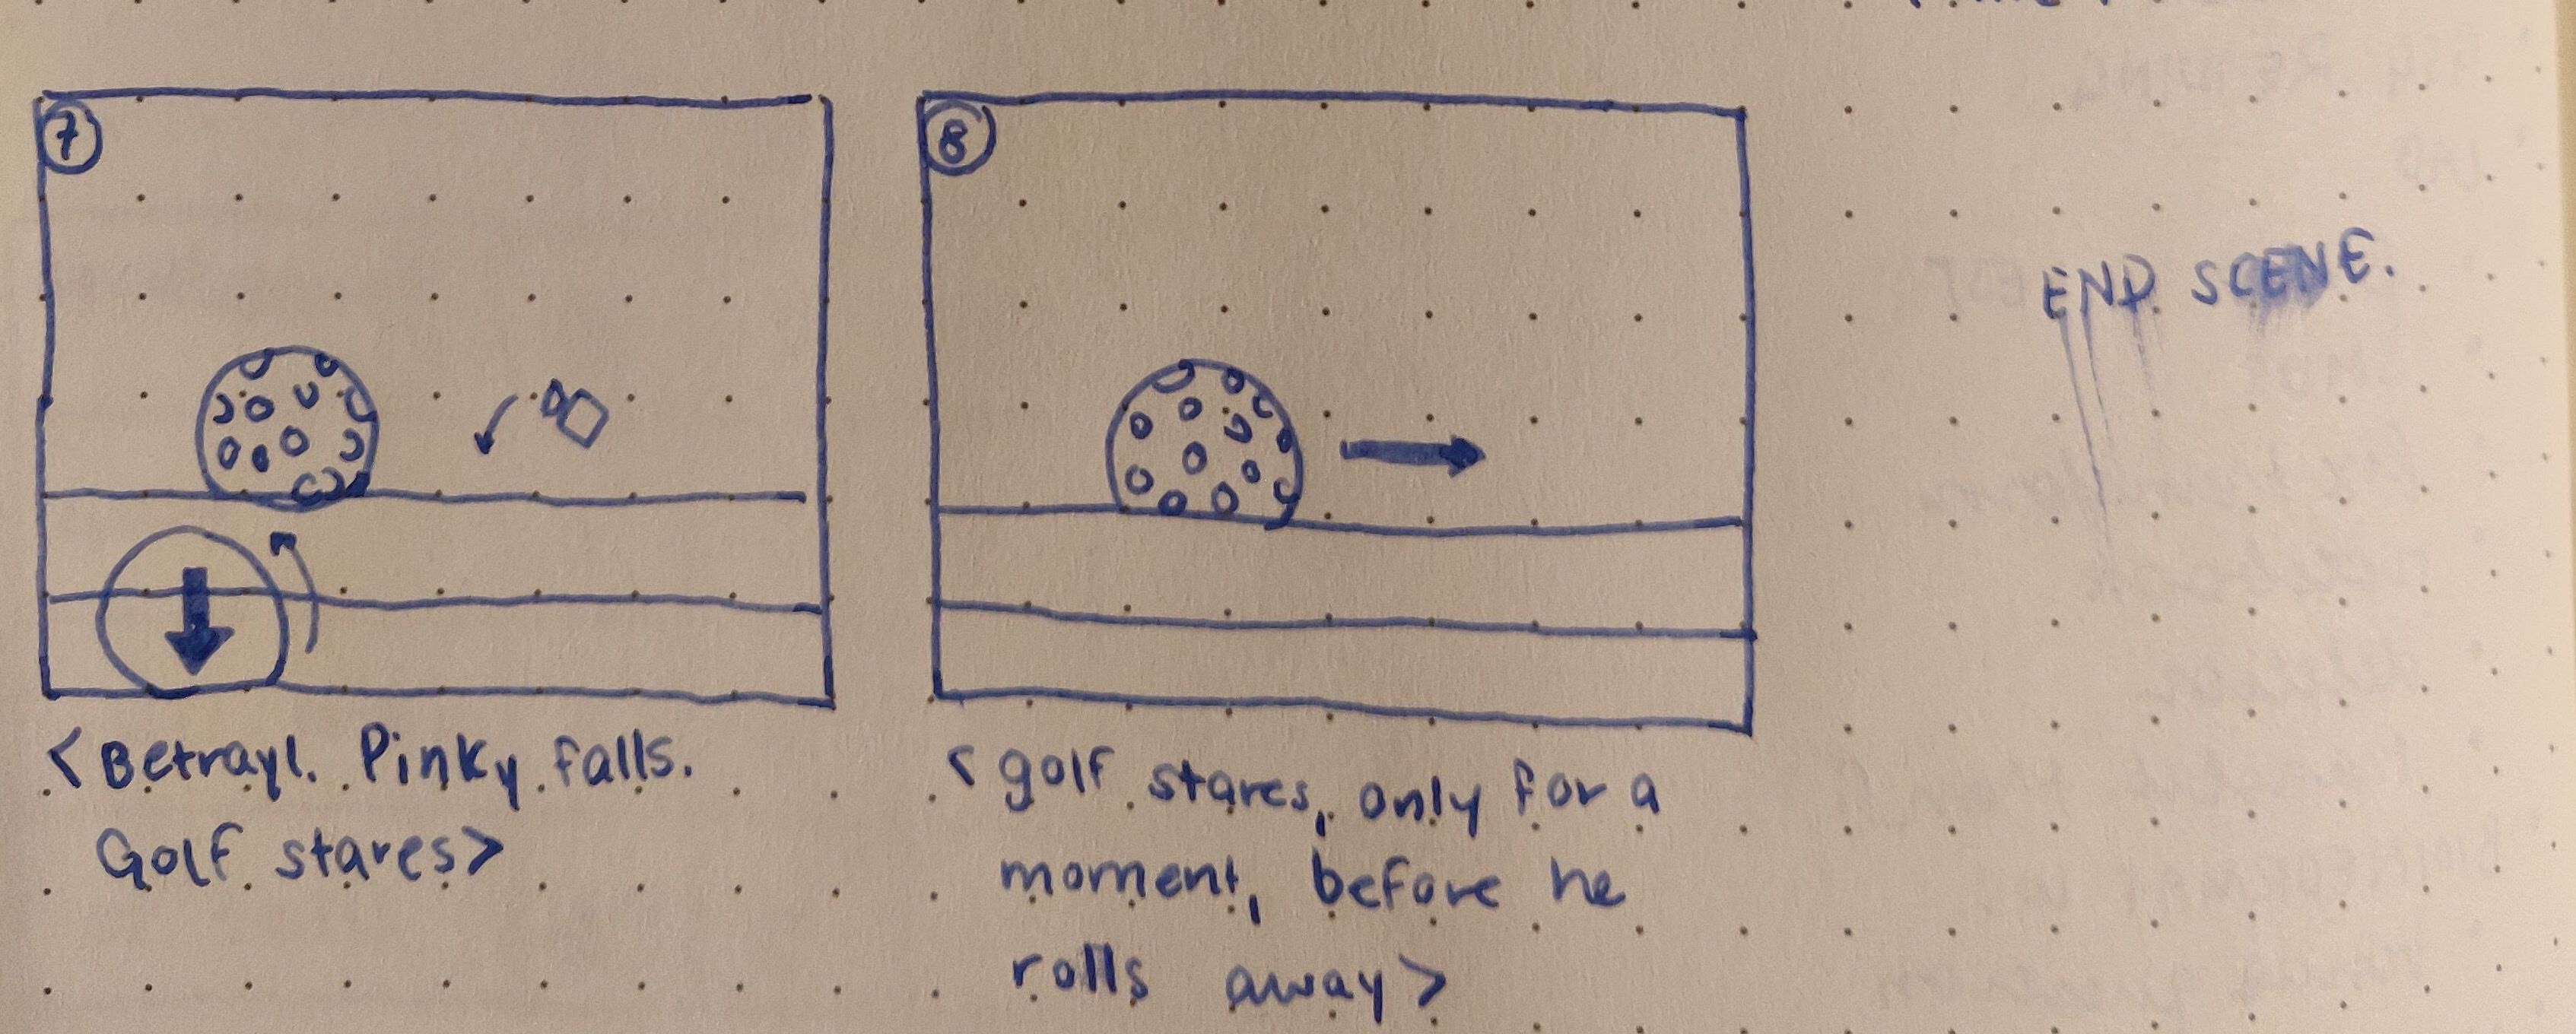 7
<Betrayl. Pinky falls.
Golf stares>
8
<golf stares, only for a
moment, before he
rolls away>
END SCENE.